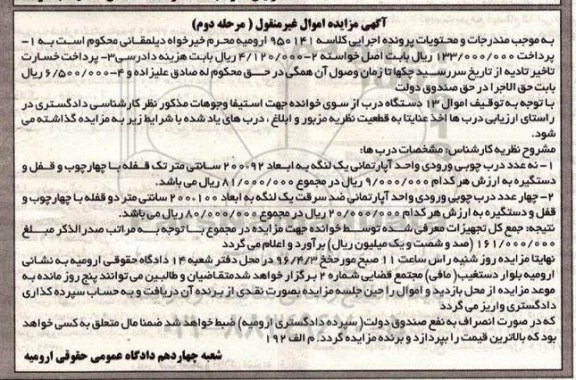 آگهی مزایده اموال غیرمنقول ( مرحله دوم)
به موجب مندرجات و محتویات پرونده اجرایی کلاسه ۹۵۰۱۲۱ ارومیه محرم خیرخواه دیلمقانی محکوم است به ۱-
پرداخت ۱۳۳/۰۰۰/۰۰۰ ریال بابت اصل خواسته ۲-۴/۱۲۰/۰۰۰ ریال بابت هزینه دادرسی۳- پرداخت خسارت
تاخیر تادیه از تاریخ سررسید چکها تا زمان وصول آن همگی در حق محکوم له صادق علیزاده و ۴-۶/۵۰۰/۰۰۰ ریال
بابت حق الاجرا در حق صندوق دولت
با توجه به توقیف اموال ۱۳ دستگاه درب از سوی خوانده جهت استیفا وجوهات مذکور نظر کارشناسی دادگستری در
راستای ارزیابی درب ها اخذ عنایتا به قطعیت نظریه مزبور و ابلاغ ، درب های یاد شده با شرایط زیر به مزایده گذاشته می
شود.
مشروح نظریه کارشناس: مشخصات درب ها:
۱- نه عدد درب چوبی ورودی واحد آپارتمانی یک لنگه به ابعاد ۹۲*۲۰۰ سانتی متر تک قفله با چهارچوب و قفل و
دستگیره به ارزش هر کدام ۹/۰۰۰/۰۰۰ ریال در مجموع ۸۱/۰۰۰/۰۰۰ ریال می باشد.
۲- چهار عدد درب چوبی ورودی واحد آپارتمانی ضد سرقت یک لنگه به ابعاد ۱۰۰*۲۰۰ سانتی متر دو قفله با چهارچوب و
قفل و دستگیره به ارزش هر کدام ۲۰/۰۰۰/۰۰۰ ریال در مجموع ۸۰/۰۰۰/۰۰۰ ریال می باشد.
نتیجه: جمع کل تجهیزات معرفی شده توسط خوانده جهت مزایده در مجموع با توجه به مراتب صدر الذکر مبلغ
۱۶۱/۰۰۰/۰۰۰ (صد و شصت و یک میلیون ریال) برآورد و اعلام می گردد
نهایتا مزایده روز شنبه راس ساعت ۱۱ صبح مورخه ۹۶/۴/۳ در محل دفتر شعبه ۱۴ دادگاه حقوقی ارومیه به نشانی
ارومیه بلوار دستغیب( مافی) مجتمع قضایی شماره ۲ برگزار خواهد شد متقاضیان و طالبین می توانند پنج روز مانده به
موعد مزایده از محل بازدید و اموال را حین جلسه مزایده بصورت نقدی از برنده آن دریافت و به حساب سپرده گذاری
دادگستری واریز می گردد
که در صورت انصراف به نفع صندوق دولت( سپرده دادگستری ارومیه) ضبط خواهد شد ضمنا مال متعلق به کسی خواهد
بود که بالاترین قیمت را بپردازد و برنده مزایده گردد. م الف ۱۹۲
شعبه چهاردهم دادگاه عمومی حقوقی ارومیه